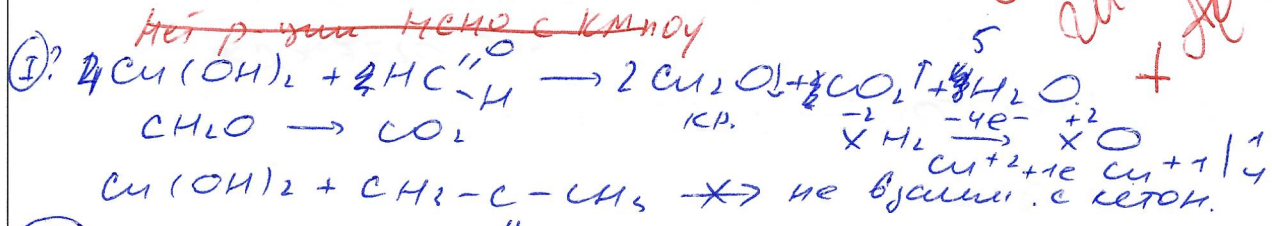 Нет р-ции HCHO с KMnO4
I? 4Cu(OH)2 + HC=O–H → 2Cu2O↓ + CO2↑ + 5H2O. +
кр.
CH2O → CO2
-2 XH2 -4e- → +2 XO | 1
Cu+2 +1e Cu+1 | 4
Cu(OH)2 + CH3-C-CH3 –X→ не взаим. с кетон.